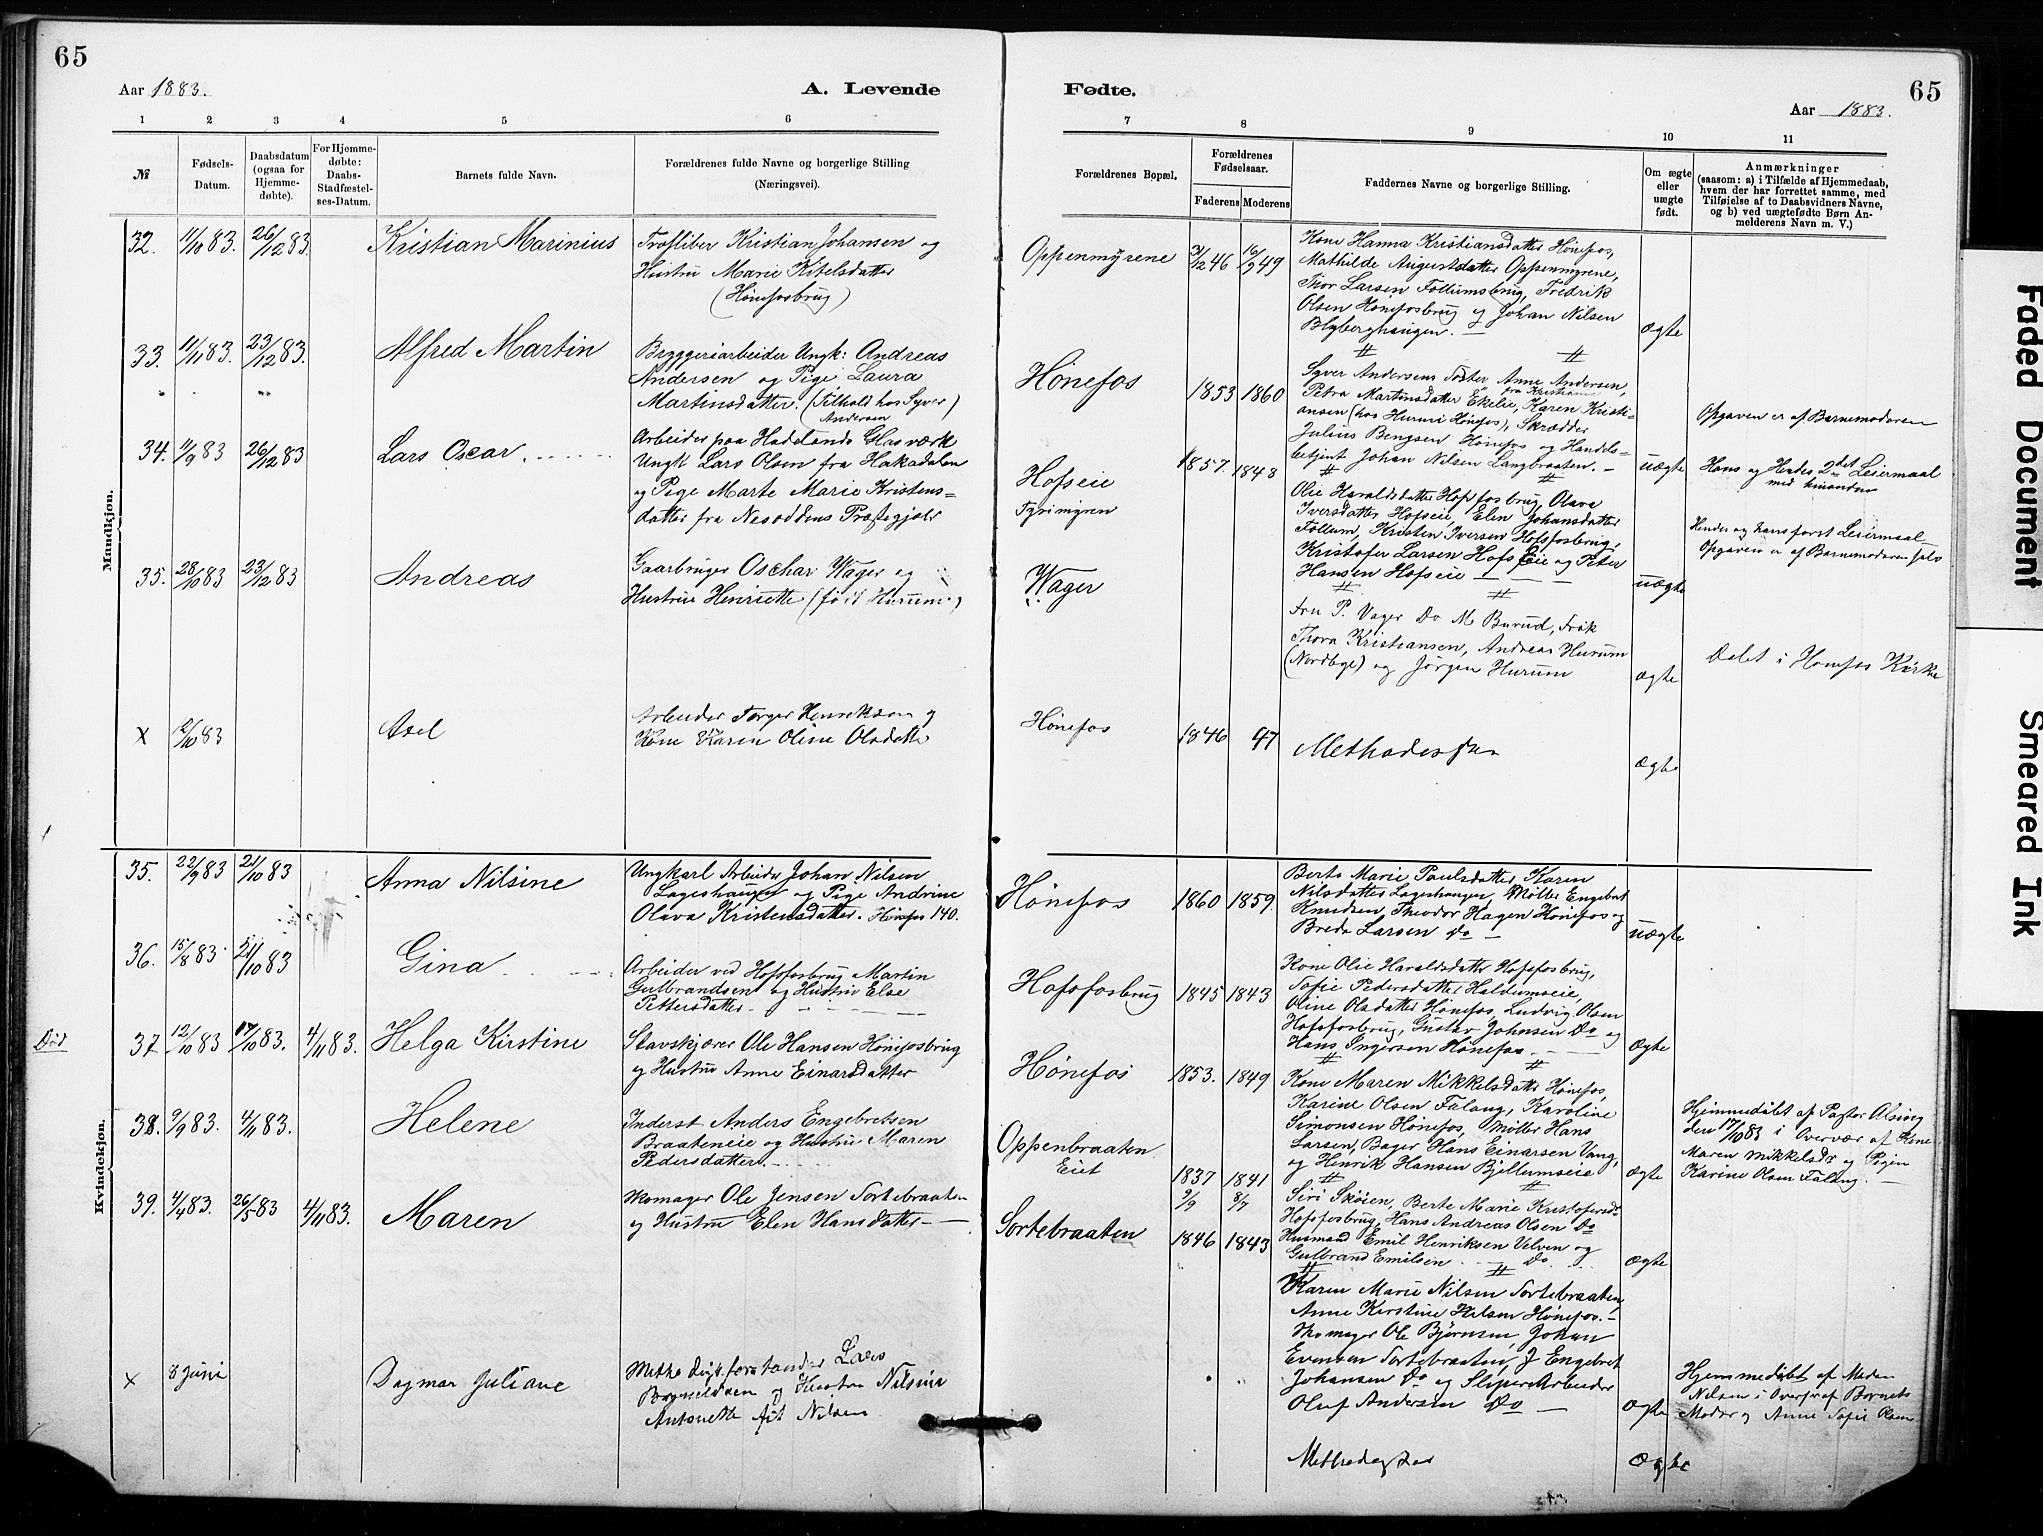 65
Aar 1883.
A. Levende
1 2 3 4 5 6
№
Fødsels-Datum.
Daabsdatum (ogsaa for Hjemme-døbte).
For Hjemme-døbte: Daabs-Stadfæstel-ses-Datum.
Barnets fulde Navn.
Forældrenes fulde Navne og borgerlige Stilling
(Næringsvei).
Mandkjøn.
32. 11/10 83. 26/12 83 Kristian Marinius
Kristian Johansen og
Hustru Marie Kitelsdatter
(Hønefosbrug)
33. 11/11 83. 23/12 83. Alfred Martin
Bryggeriarbeider Ungk: Andreas
Andersen og Pige Laura
Martinsdatter. (Tilhold hos Syver Andersen)
34. 11/9 83 26/12 83 Lars Oscar
Arbeider paa Hadelands Glasværk
Ungk Lars Olsen fra Hakadalen
og Pige Marte Marie Kristens=
datter fra Nesoddens Præstegjeld
35. 28/10 83 23/12 83 Andreas
Gaarbruger Oschar Wager og
Hustrue Henriette (født Hurum)
x 12/10 83 Axel
Arbeider Torger Henriksen og
Kone Karen Oline Olsdatter
Kvindekjøn.
35. 22/9 83 21/10 83 Anna Nilsine
Ungkarl Arbeider Johan Nilsen
Lageshaugen og Pige Andrine
Olava Kristensdatter. Hønefos 140.
36. 15/8 83 21/10 83 Gina
Arbeider ved Hofsfosbrug Martin
Gulbrandsen og Hustru Else
Pettersdatter
Død 37 12/10 83 17/10 83. 4/11 83. Helga Kirstine
Stavskjærer Ole Hansen Hønefosbrug
og Hustru Anne Einarsdatter
38. 9/9 83. 4/11 83. Helene
Inderst Anders Engebretsen
Braateneie og Hustru Maren
Pedersdatter
39. 4/4 83. 26/5 83 4/11 83. Maren
Skomager Ole Jensen Sortebraaten
og Hustru Elen Hansdatter
x 8 Juni Dagmar Juliane
Lars
og Hustru Nilsine
Antonette født Nilsen
65
Fødte.
Aar 1883.
7 8 9 10 11
Forældrenes Bopæl.
Forældrenes Fødselsaar.
Faderens Moderens
Faddernes Navne og borgerlige Stilling.
Om ægte eller uægte født.
Anmærkninger
(saasom: a) i Tilfælde af Hjemmedaab,
hvem der har forrettet samme, med
Tilføielse af to Daabsvidners Navne,
og b) ved uægtefødte Børn An-
melderens Navn m. V.)
Oppenmyrene 31/12 46 16/9 49
Kone Hanna Kristiansdatter Hønefos,
Mathilde Augustdatter Oppenmyrene,
Thor Larsen Follumsbrug, Fredrik
Olsen Hønefosbrug og Johan Nilsen
Blyberghaugen. ægte
Hønefos 1853 1860
Syver Andersens Datter Anne Andersen,
fra Kristiania
Petra Martinsdatter Ekelie, Karen Kristi-
ansen (hos Hurum Hønefos), Skrædder
Julius Bengsen Hønefos og Handels-
betjent Johan Nilsen Langbraaten. uægte
Opgaven er af Barnemoderen
Hans og Hendes 2det Leiermaal
med hinanden
Hofseie
Tyrimyren 1857. 1848
Olie Haraldsdatter Hofsfosbrug, Olava
Iversdatter Hofseie, Elen Johansdatter
Follum, Kristen Iversen Hofsfosbrug,
Kristofer Larsen Hofseie og Peter
Hansen Hofseie uægte
Hendes og hans først Leiermaal
Opgaven er af Barnemoderen selv
Wager
Fru P. Vager Do M Burud, Frøk
Thora Kristiansen, Andreas Hurum
(Nordbye) og Jørgen Hurum ægte
Døbt i Hønefos Kirke
Hønefos 1846 47
ægte
Hønefos 1860 1859.
Berte Marie Paulsdatter, Karen
Nilsdatter Lageshaugen, Møller Engebret
Knudsen, Theodor Hagen Hønefos og
Breda Larsen Do uægte
Hofsfosbrug 1845 1843
Kone Olie Haraldsdatter Hofsfosbrug,
Sofie Pedersdatter Haldumseie,
Oline Olsdatter Hønefos, Ludvig Olsen
Hofsfosbrug, Gustav Johnsen Do og
Hans Ingersen Hønefos ægte
Hønefos 1853. 1849
Kone Maren Mikkelsdatter Hønefos,
Karine Olsen Falang, Karoline
Simonsen Hønefos, Møller Hans
Larsen, Bager Hans Einarsen Vang,
og Henrik Hansen Bjellumseie ægte
Hjemmedøbt af Pastor Alsing
den 17/10 83 i Overvær af Kone
Maren Mikkelsdr og Pigen
Karine Olsen Falang.
Oppenbraaten
Eiet 1837 1841
9/9 8/7
Siri Skøien, Berte Marie Kristofersdr
Hofsfosbrug, Hans Andreas Olsen Do
Husmand Emil Henriksen Velven og
Gulbrand Emilsen Do ægte
Sortebraaten 1846 1843
Karen Marie Nilsen Sortebraaten,
Anne Kirstine Nilsen Hønefos.
Skomager Ole Bjørnsen, Johan
Evensen Sortebraaten, J Engebret
Johansen Do og Sliperi Arbeider
Oluf Andersen Do ægte
Hjemmedøbt af
Nilsen i Overv af Barnets
Moder og Anne Sofie Olsen
ægte
Faded Document
Smeared Ink